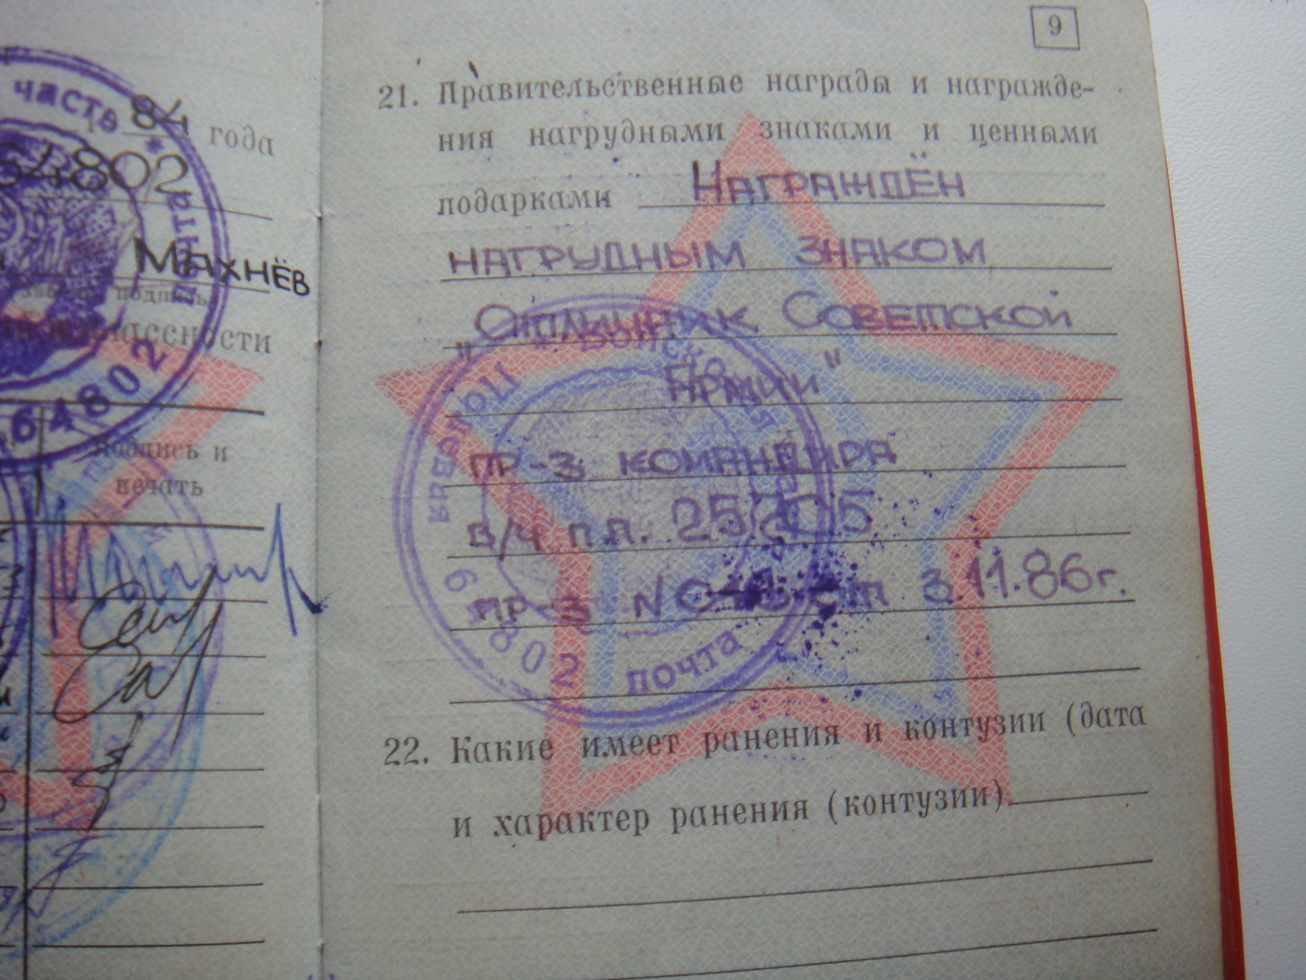 часть *
84 года
64802
Махнёв
подпись
классности
64802
подпись и
печать
9
21. Правительственные награды и награжде-
ния нагрудными знаками и ценными
подарками НАГРАЖДЁН
НАГРУДНЫМ ЗНАКОМ
„Отличник Советской
Армии"
ПР-З КОМАНДИРА
В/Ч П.П.
ПР-З от 3.11.86г.
Полевая почта
64802
22. Какие имеет ранения и контузии (дата
и характер ранения (контузии)